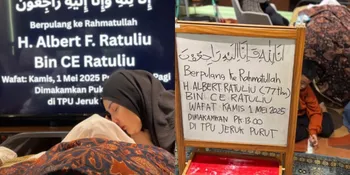 إنا لله وإنا إليه راجعون
Berpulang ke Rahmatullah
H. Albert F. Ratuliu
Bin CE Ratuliu
Wafat: Kamis, 1 Mei 2025 Pagi
Dimakamkan
di TPU Jeruk
إنا لله وإنا إليه راجعون
Berpulang ke Rahmatullah
H ALBERT RATULIU (77thn)
BIN CE RATULIU
WAFAT KAMIS, 1 MEI 2025
DIMAKAMKAN PK 13.00
DI TPU JERUK PURUT